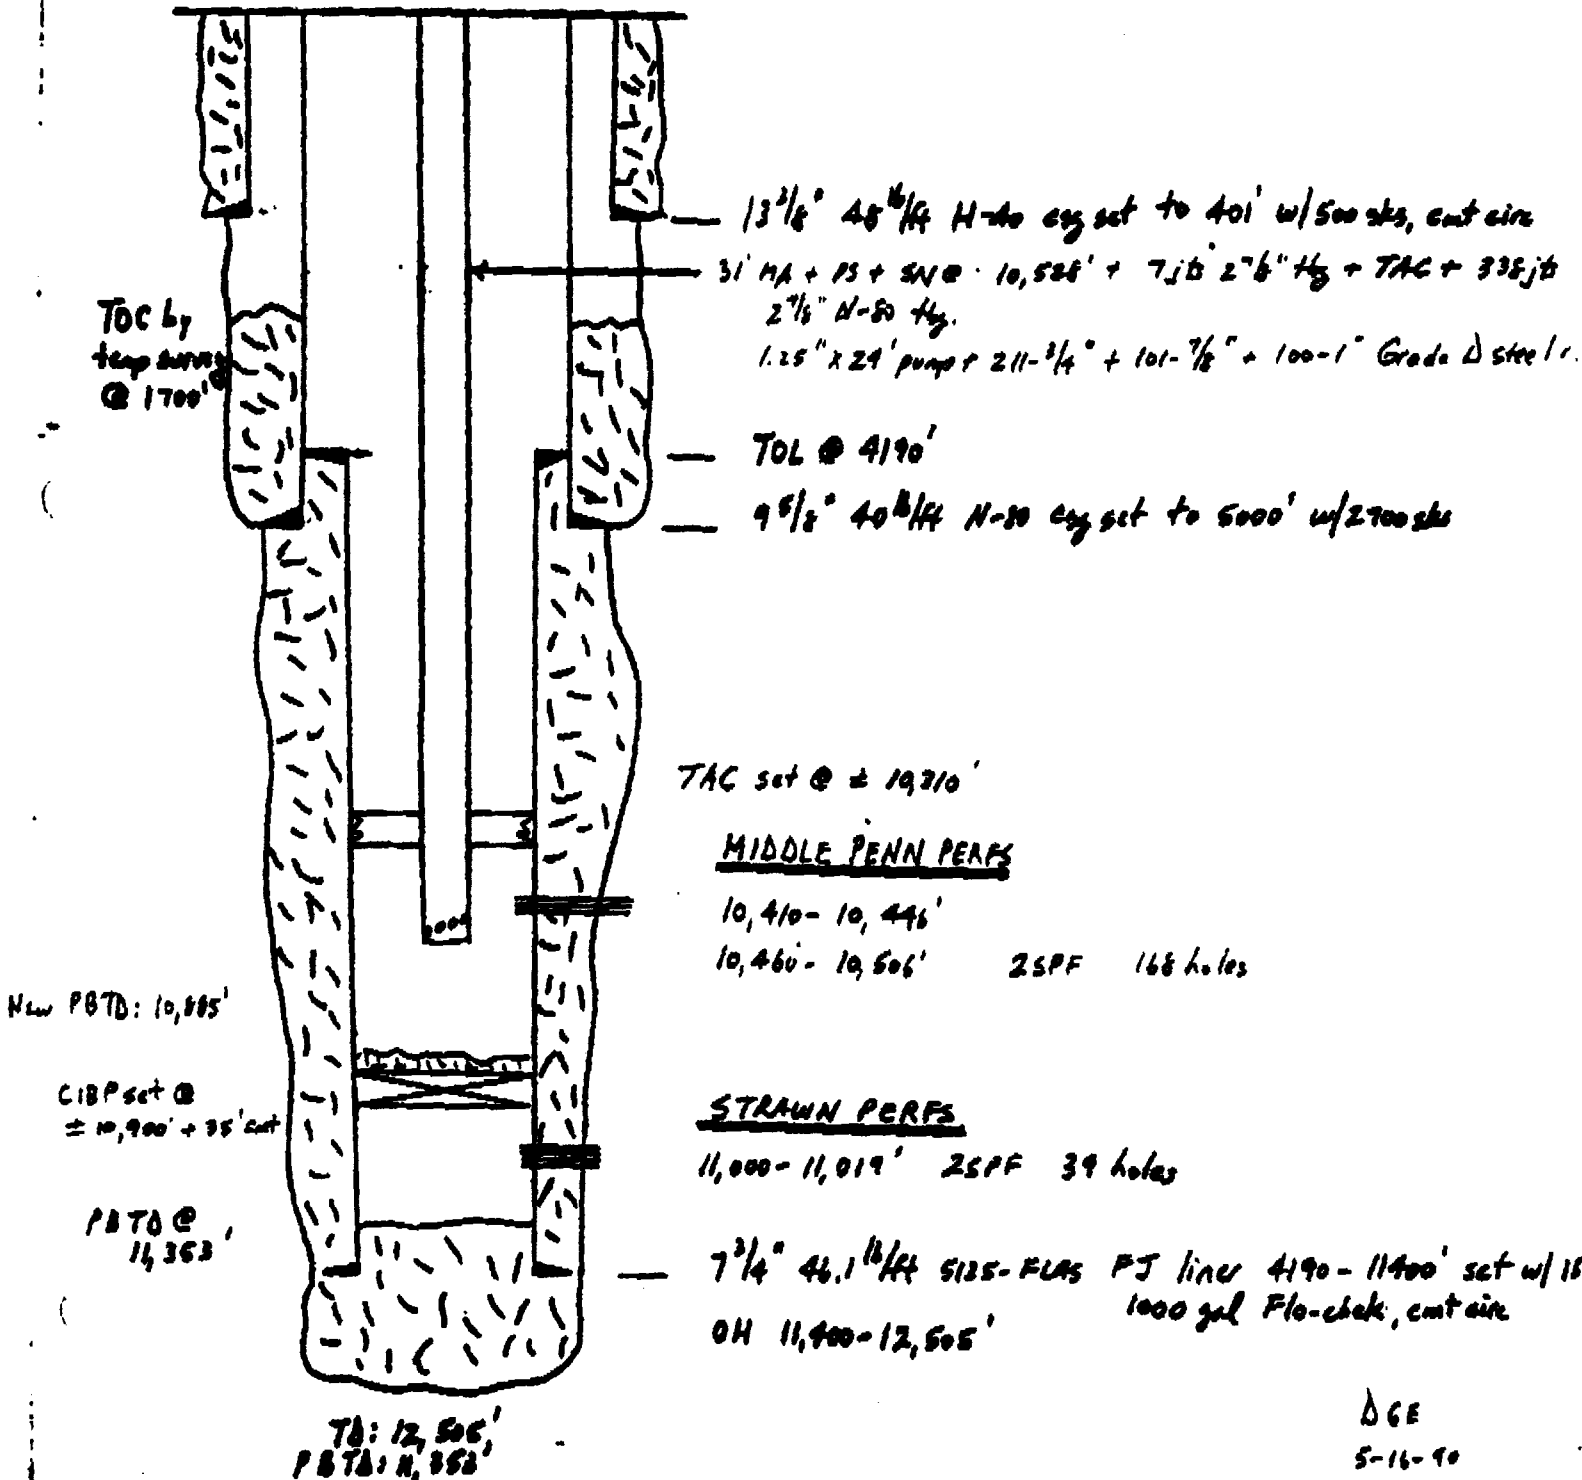 13 3/8" 48 lb/ft H-40 csg set to 401' w/500 sks, cmt circ
31' MA + PS + SN @ 10,528' + 7 jts 2 7/8" tbg + TAC + 338 jts
2 7/8" N-80 tbg.
1.25" x 24' pump + 211-3/4" + 101-7/8" + 100-1" Grade D steel r.
TOC by
temp survey
@ 1700'
TOL @ 4190'
9 5/8" 40 lb/ft N-80 csg set to 5000' w/2700 sks
TAC set @ ± 10,310'
MIDDLE PENN PERFS
10,410 - 10,446'
10,460 - 10,506' 2SPF 168 holes
New PBTD: 10,885'
CIBP set @
± 10,900' + 35' cmt
STRAWN PERFS
11,000 - 11,019' 2SPF 39 holes
PBTD @
11,353'
7 3/4" 46.1 lb/ft S125- FJ liner 4190 - 11400' set w/
1000 gal Flo-chek, cmt circ
OH 11,400 - 12,505'
TD: 12,505'
PBTD: 11,353'
DGE
5-16-90